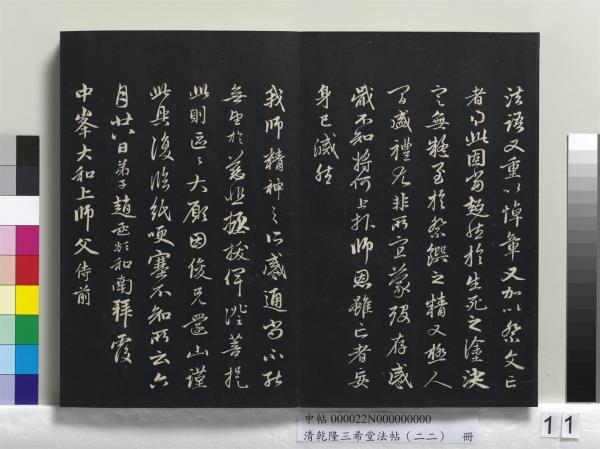 法語又重以悼章又加以祭文亡
者得此固當超然於生死之塗決
定無疑至於祭饌之精又極人
間盛禮尤非所宜蒙歿存感
戴不知將何上報師恩雖亡者妄
身已滅然
我師精神之所感通尚不能
無望於慈悲拯拔俾證菩提
此則區區大願因俊兄還山謹
此具復臨紙哽塞不知所云六
月廿八日弟子趙孟頫和南拜覆
中峯大和上師父侍前
中帖 000022N000000000
清乾隆三希堂法帖（二二） 冊
11